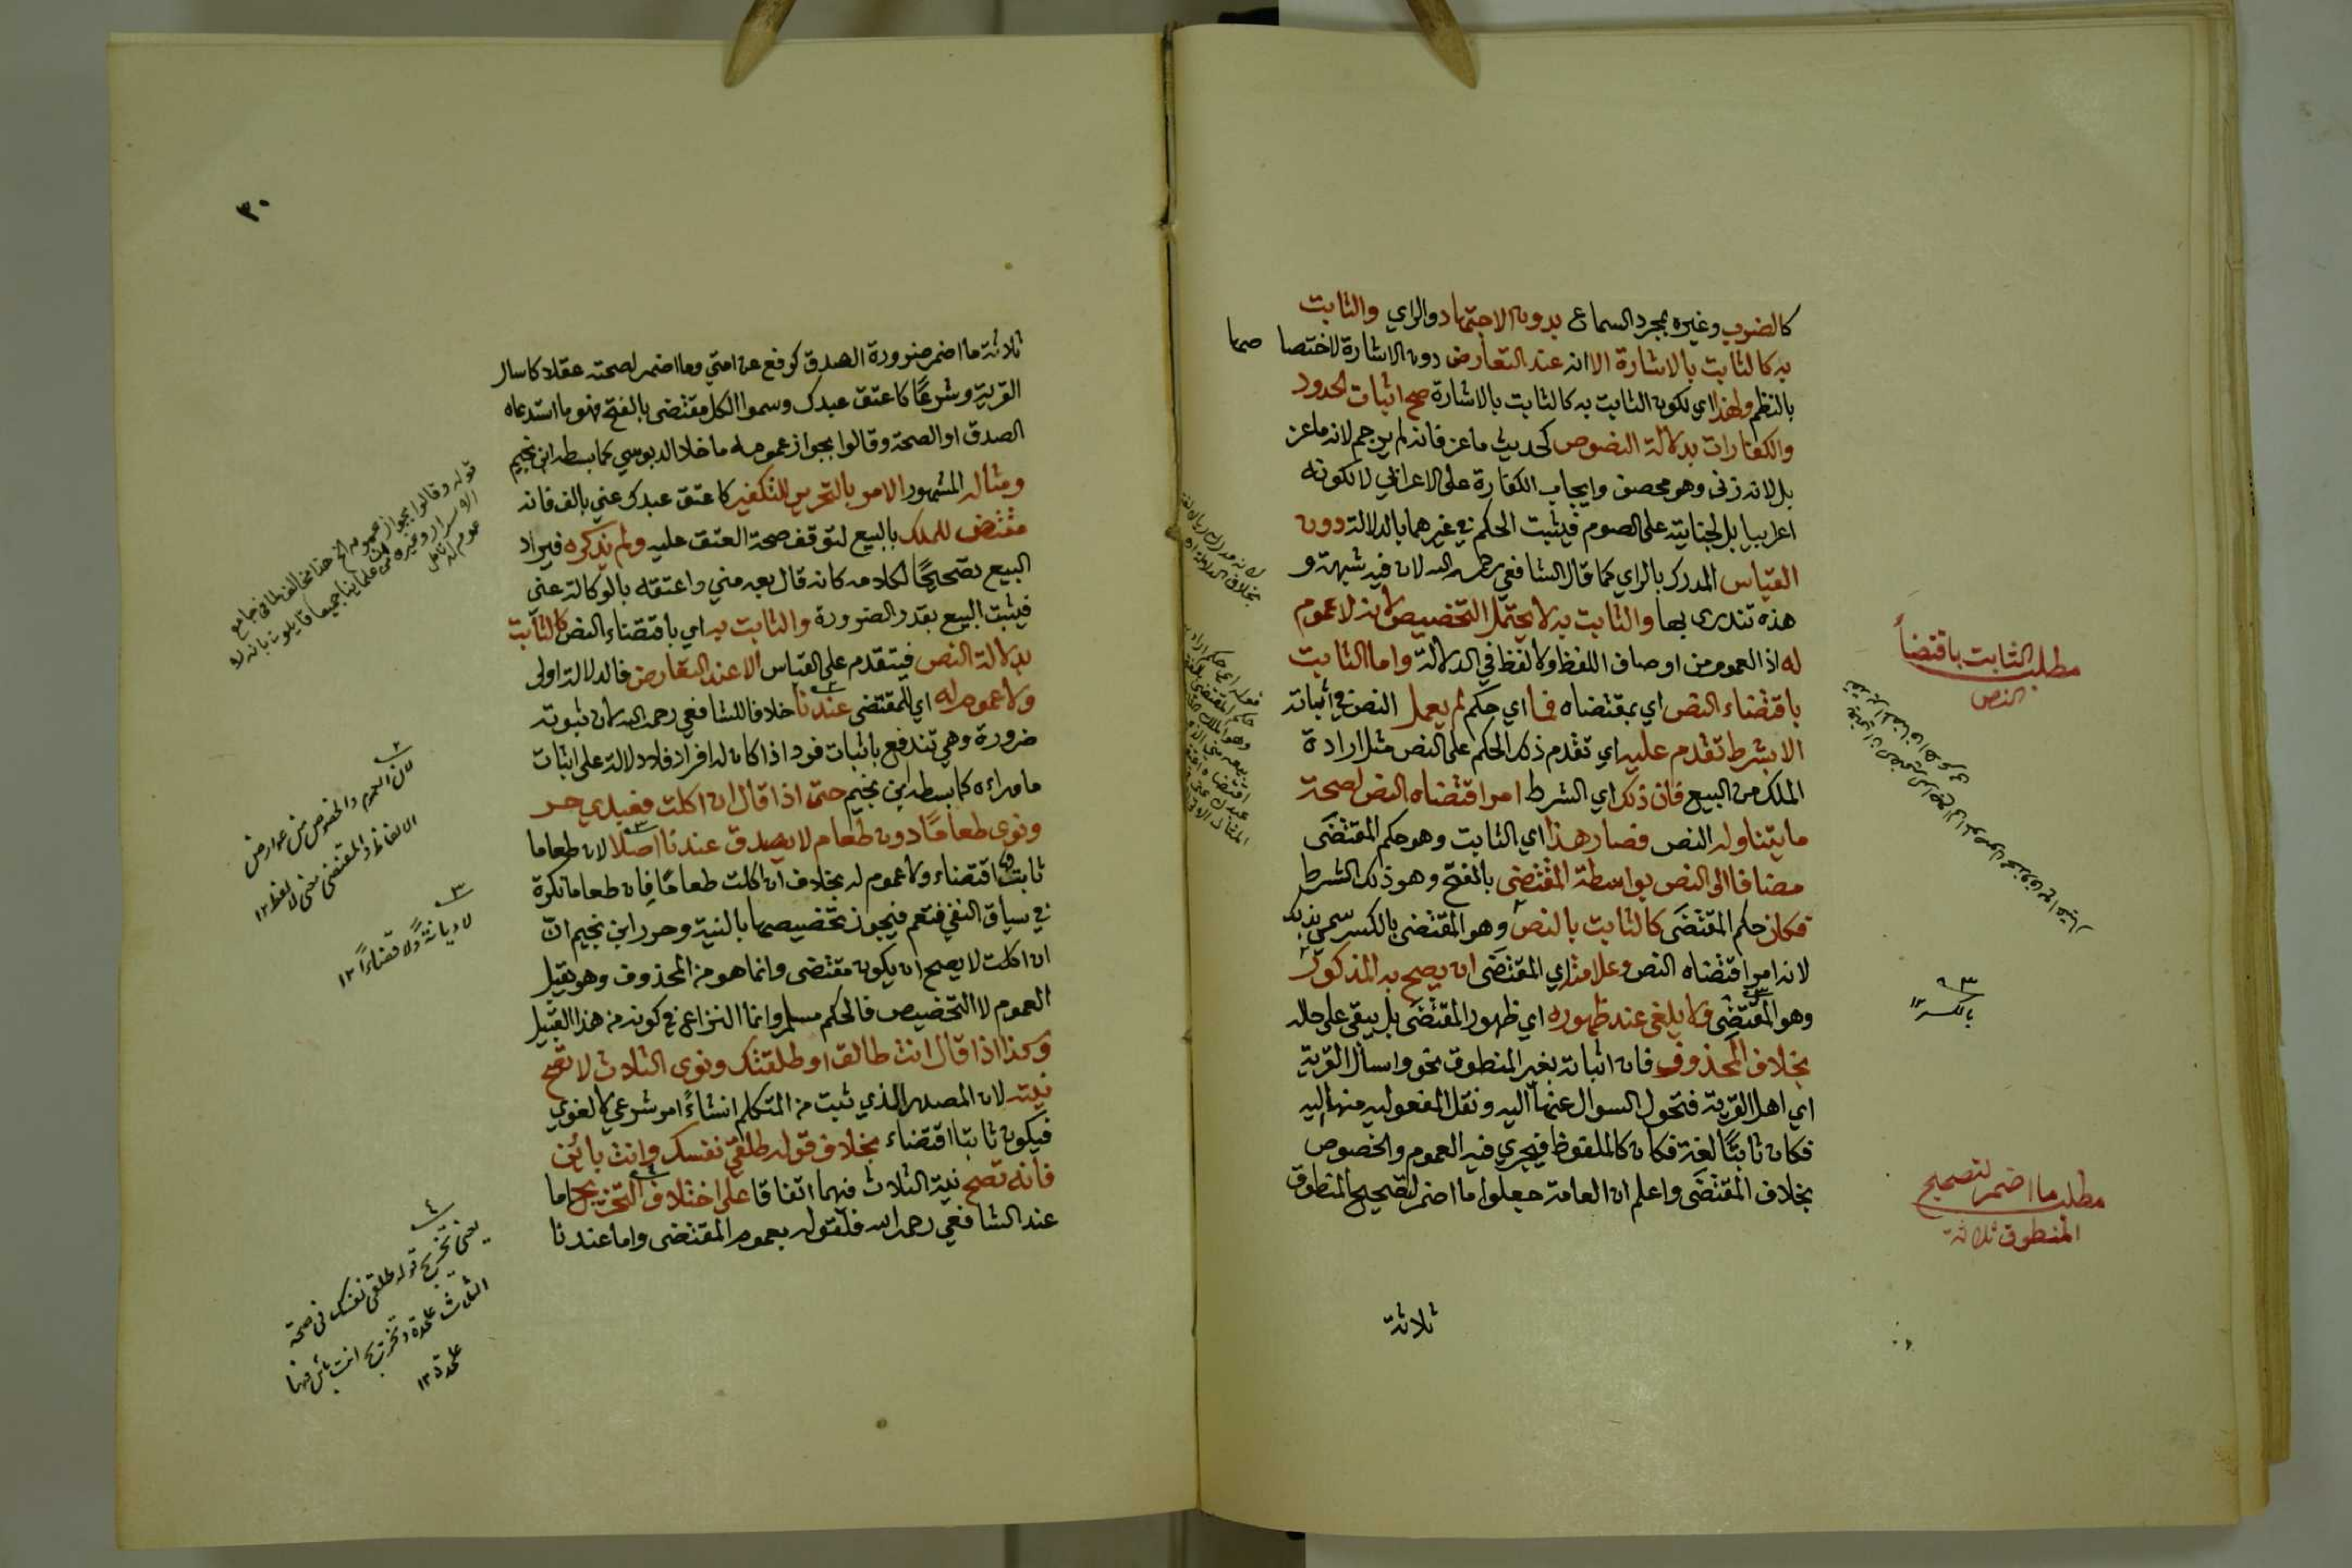 كالضرب وغيره بمجرد السماع بدون الاجتهاد والراي والثابت
به كالثابت بالاشارة الا انه عند التعارض دون الاشارة لاختصاصها
بالنظم ولهذا اي لكون الثابت به كالثابت بالاشارة صح اثبات الحدود
والكفارات بدلالة النصوص كحديث ماعز فانه لم يرجم لانه ماعز
بل لانه زنى وهو محصن وايجاب الكفارة على الاعرابي لا لكونه
اعرابيا بل لجنايته على الصوم فيثبت الحكم في غيرهما بالدلالة دون
القياس المدرك بالراي كما قال الشافعي رحمه الله لان فيه شبهة و
هذه تندرئ بها والثابت به لا يحتمل التخصيص لانه لا عموم
له اذ العموم من اوصاف اللفظ ولا لفظ في الدلالة واما الثابت
باقتضاء النص اي بمقتضاه فما اي حكم لم يعمل النص في اثباته
الا بشرط تقدم عليه اي تقدم ذلك الحكم على النص مثل ارادة
الملك من البيع فان ذلك اي الشرط امر اقتضاه النص لصحة
ما يتناوله النص فصار هذا اي الثابت وهو حكم المقتضَى
مضافا الى النص بواسطة المقتضى بالفتح وهو ذلك الشرط
فكان حكم المقتضَى كالثابت بالنص وهو المقتضي بالكسر سمي بذلك
لانه امر اقتضاه النص وعلامته اي المقتضَى ان يصح به المذكور
وهو المقتضِي ولا يلغى عند ظهوره اي ظهور المقتضَى بل يبقى على حاله
بخلاف المحذوف فان اثباته بغير المنطوق نحو واسأل القرية
اي اهل القرية فتحول السوال عنها اليه ونقل المفعوليه منها اليه
فكان ثابتًا لغة فكان كالملفوظ فيجري فيه العموم والخصوص
بخلاف المقتضَى واعلم ان العامة جعلوا ما اضمر لتصحيح المنطوق
ثلاثة
مطلب الثابت باقتضاءً
النص
٣
بالكسر ١٢
مطلب ما اضمر لتصحيح
المنطوق ثلاثة
٣٠
ثلاثة ما اضمر ضرورة الصدق كرفع عن امتي وما اضمر لصحته عقلا كاسال
القرية وشرعًا كاعتق عبدك وسموا الكل مقتضى بالفتح فهو ما استدعاه
الصدق او الصحة وقالوا بجواز عمومه ما خلا الدبوسي كما بسطه ابن نجيم
ومثاله المشهور الامر بالتحرير للتكفير كاعتق عبدك عني بالف فانه
مقتض للملك بالبيع لتوقف صحة العتق عليه ولم يذكره فيراد
البيع تصحيحًا لكلامه كانه قال بعه مني واعتقه بالوكالة عني
فيثبت البيع بقدر الضرورة والثابت به اي باقتضاء النص كالثابت
بدلالة النص فيتقدم على القياس الا عند التعارض فالدلالة اولى
ولا عموم له اي للمقتضى عندنا خلافا للشافعي رحمه الله لان ثبوته
ضرورة وهي تندفع باثبات فرد اذا كان له افراد فلا دلالة على اثبات
ما وراءه كما بسطه ابن نجيم حتى اذا قال ان اكلت فعبدي حر
ونوى طعامًا دون طعام لا يصدق عندنا اصلا لان طعاما
ثابت اقتضاء ولا عموم له بخلاف ان اكلت طعامًا فان طعاما نكرة
في سياق النفي فتعم فيجوز تخصيصها بالنية وحرر ابن نجيم ان
ان اكلت لا يصح ان يكون مقتضى وانما هو من المحذوف وهو يقبل
العموم لا التخصيص فالحكم مسلم وانما النزاع في كونه من هذا القبيل
وكذا اذا قال انت طالق او طلقتك ونوى الثلاث لا تصح
نيته لان المصدر الذي ثبت من المتكلم انشاءً امر شرعي لا لغوي
فيكون ثابتا اقتضاء بخلاف قوله طلقي نفسك وانت بائن
فانه تصح نية الثلاث فيهما اتفاقا على اختلاف التخريج اما
عند الشافعي رحمه الله فلقوله بعموم المقتضى واما عندنا
قوله وقالوا بجواز عمومه الخ هذا مخالف لما في جامع
الاسرار وغيره من علماينا جميعا قايلون بانه لا
عموم له تامل
٢
لان العموم والخصوص من عوارض
الالفاظ والمقتضى معنى لا لفظ ١٢
٣
لا ديانةً ولا قضاءً ١٢
٤
يعني تخريج قوله طلقي نفسك في صحة
الثلاث علحدة وتخريج انت بائن فيها
علحدة ١٢